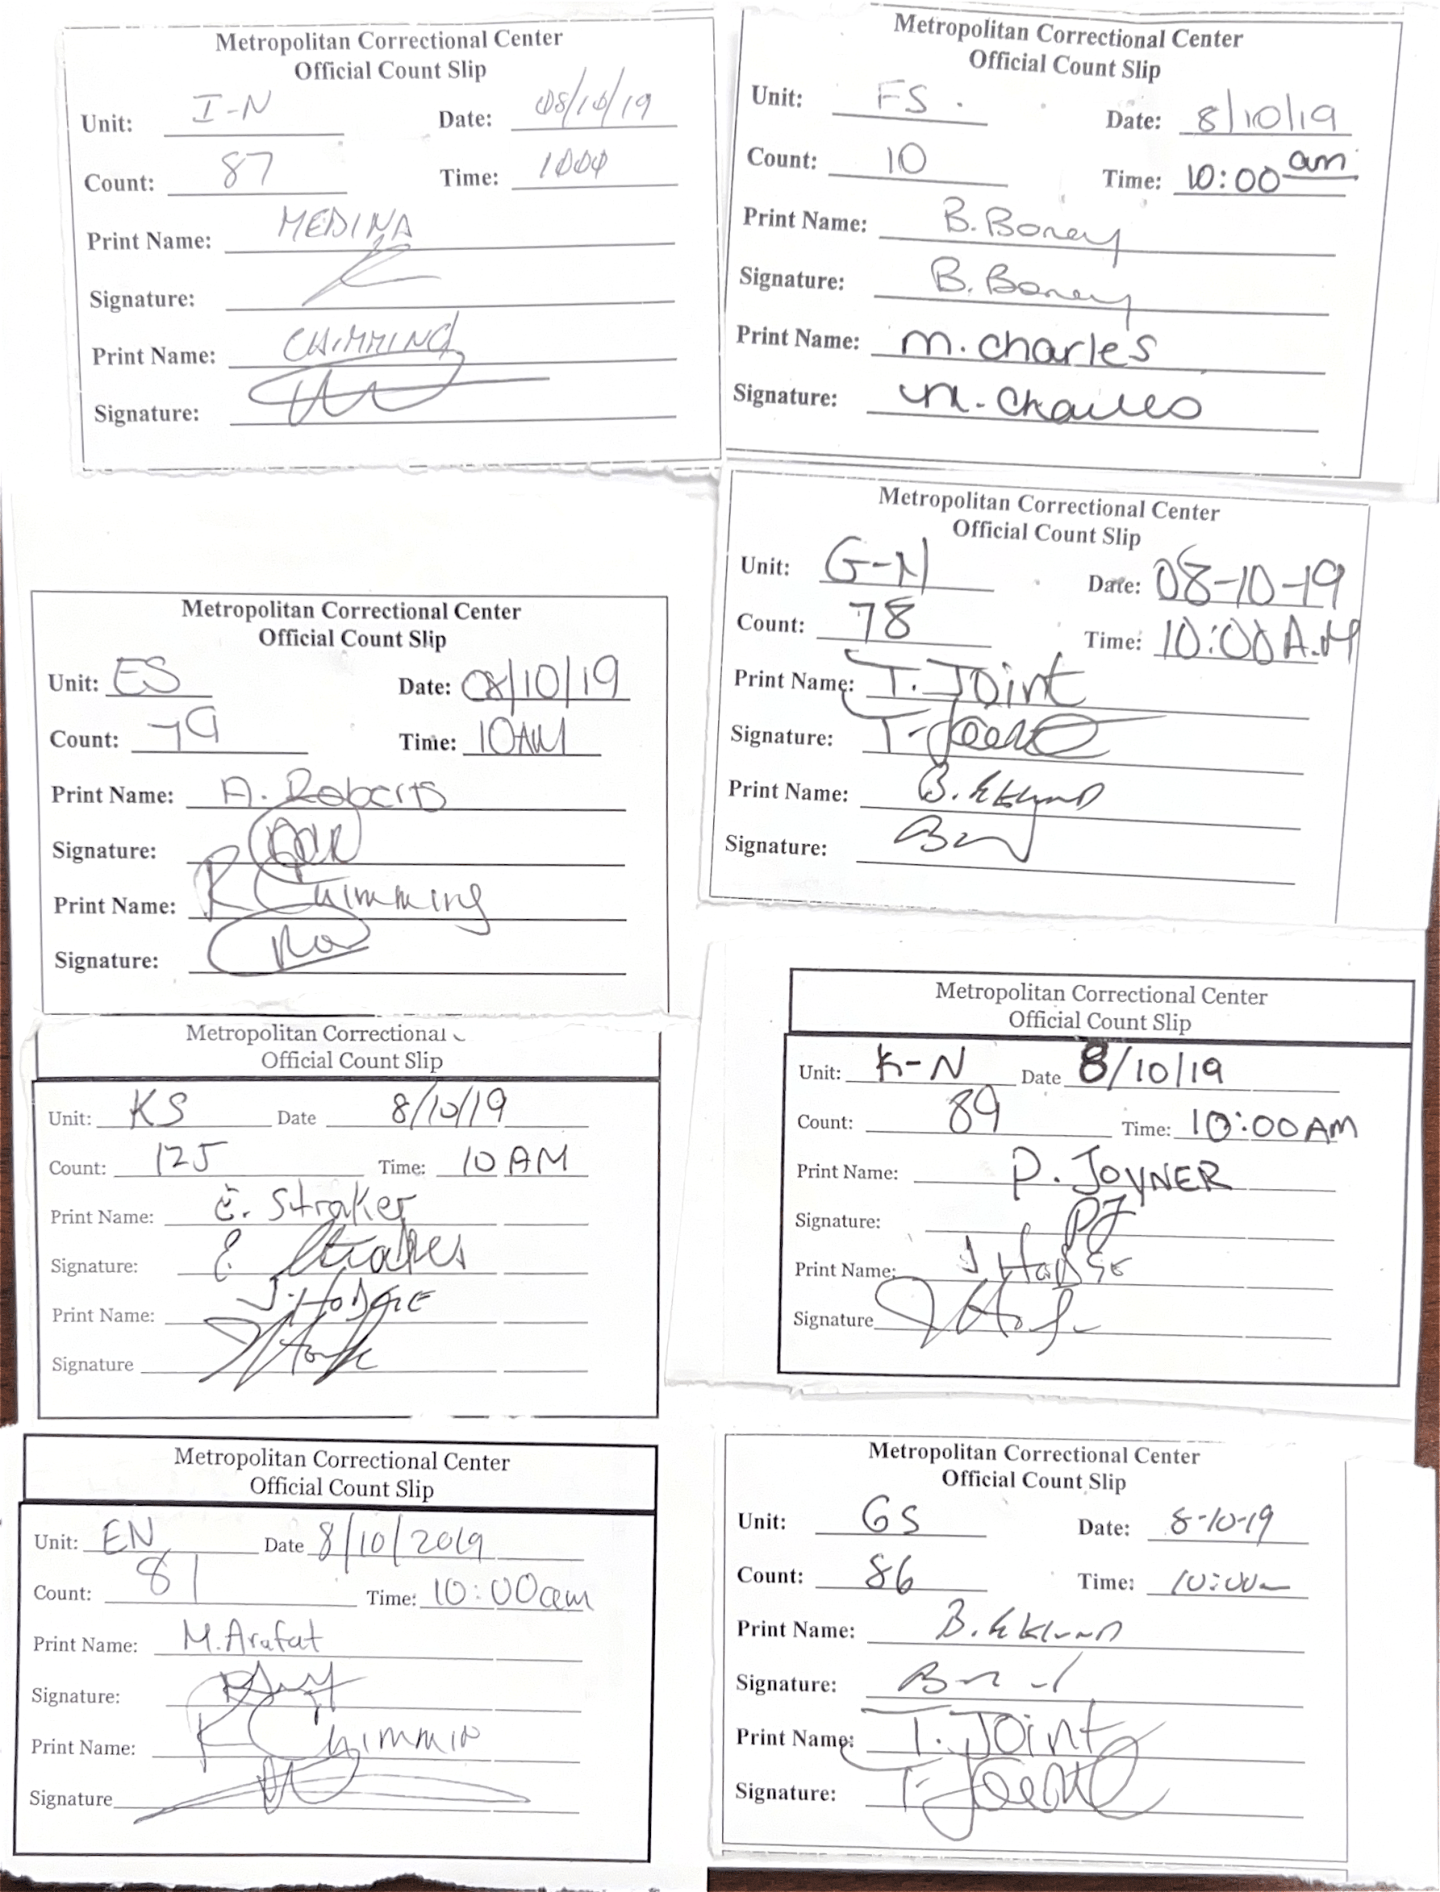 Metropolitan Correctional Center
Official Count Slip
Unit: I-N Date: 08/10/19
Count: 87 Time: 1000
Print Name: MEDINA
Signature:
Print Name: CHIMMING
Signature:
Metropolitan Correctional Center
Official Count Slip
Unit: FS. Date: 8/10/19
Count: 10 Time: 10:00 am
Print Name: B. Boney
Signature: B. Boney
Print Name: M. Charles
Signature: M. Charles
Metropolitan Correctional Center
Official Count Slip
Unit: ES Date: 08/10/19
Count: 79 Time: 10AM
Print Name: A. Roberts
Signature:
Print Name: R Chimming
Signature:
Metropolitan Correctional Center
Official Count Slip
Unit: G-N Date: 08-10-19
Count: 78 Time: 10:00 A.M
Print Name: T. Joint
Signature: T. Joint
Print Name: B. Eklund
Signature:
Metropolitan Correctional
Official Count Slip
Unit: KS Date 8/10/19
Count: 125 Time: 10 AM
Print Name: E. Straker
Signature: E. Straker
Print Name: J. HODGE
Signature
Metropolitan Correctional Center
Official Count Slip
Unit: K-N Date 8/10/19
Count: 89 Time: 10:00 AM
Print Name: P. JOYNER
Signature: PJ
Print Name: J HODGE
Signature
Metropolitan Correctional Center
Official Count Slip
Unit: EN Date 8/10/2019
Count: 81 Time: 10:00am
Print Name: M. Arafat
Signature:
Print Name: R Chimmin
Signature
Metropolitan Correctional Center
Official Count Slip
Unit: GS Date: 8-10-19
Count: 86 Time: 10:00
Print Name: B. Eklund
Signature:
Print Name: T. Joint
Signature: T. Joint